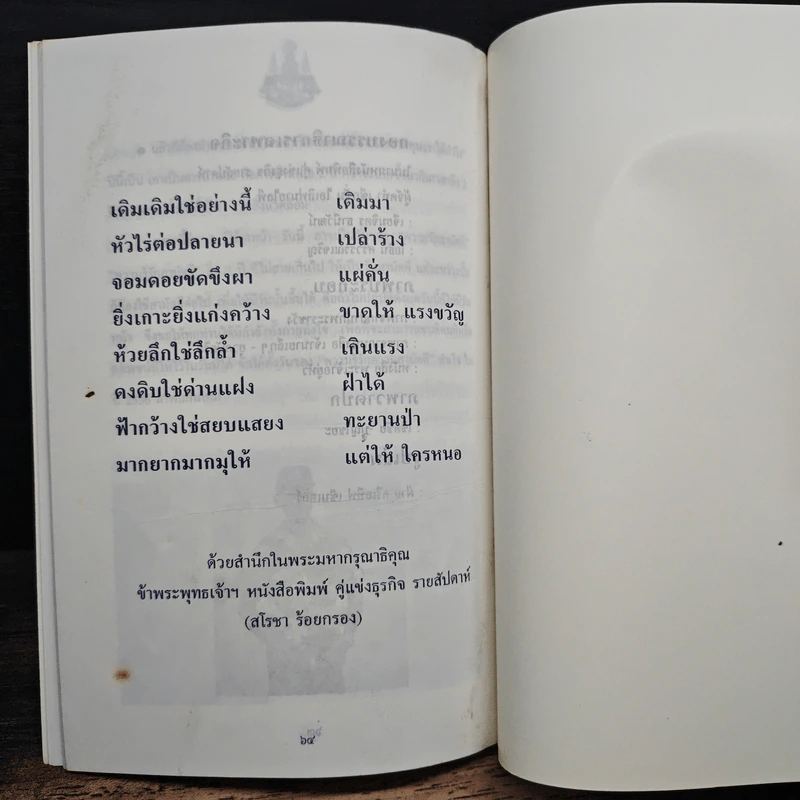 เดิมเดิมใช่อย่างนี้ เดิมมา
หัวไร่ต่อปลายนา เปล่าร้าง
จอมดอยขัดขึงผา แผ่คั่น
ยิ่งเกาะยิ่งแก่งคว้าง ขาดให้ แรงขวัญ
ห้วยลึกใช่ลึกล้ำ เกินแรง
ดงดิบใช่ด่านแฝง ฝ่าได้
ฟ้ากว้างใช่สยบแสยง ทะยานป่า
มากยากมากมุให้ แต่ให้ ใครหนอ
ด้วยสำนึกในพระมหากรุณาธิคุณ
ข้าพระพุทธเจ้าฯ หนังสือพิมพ์ คู่แข่งธุรกิจ รายสัปดาห์
(สโรชา ร้อยกรอง)
๖๔